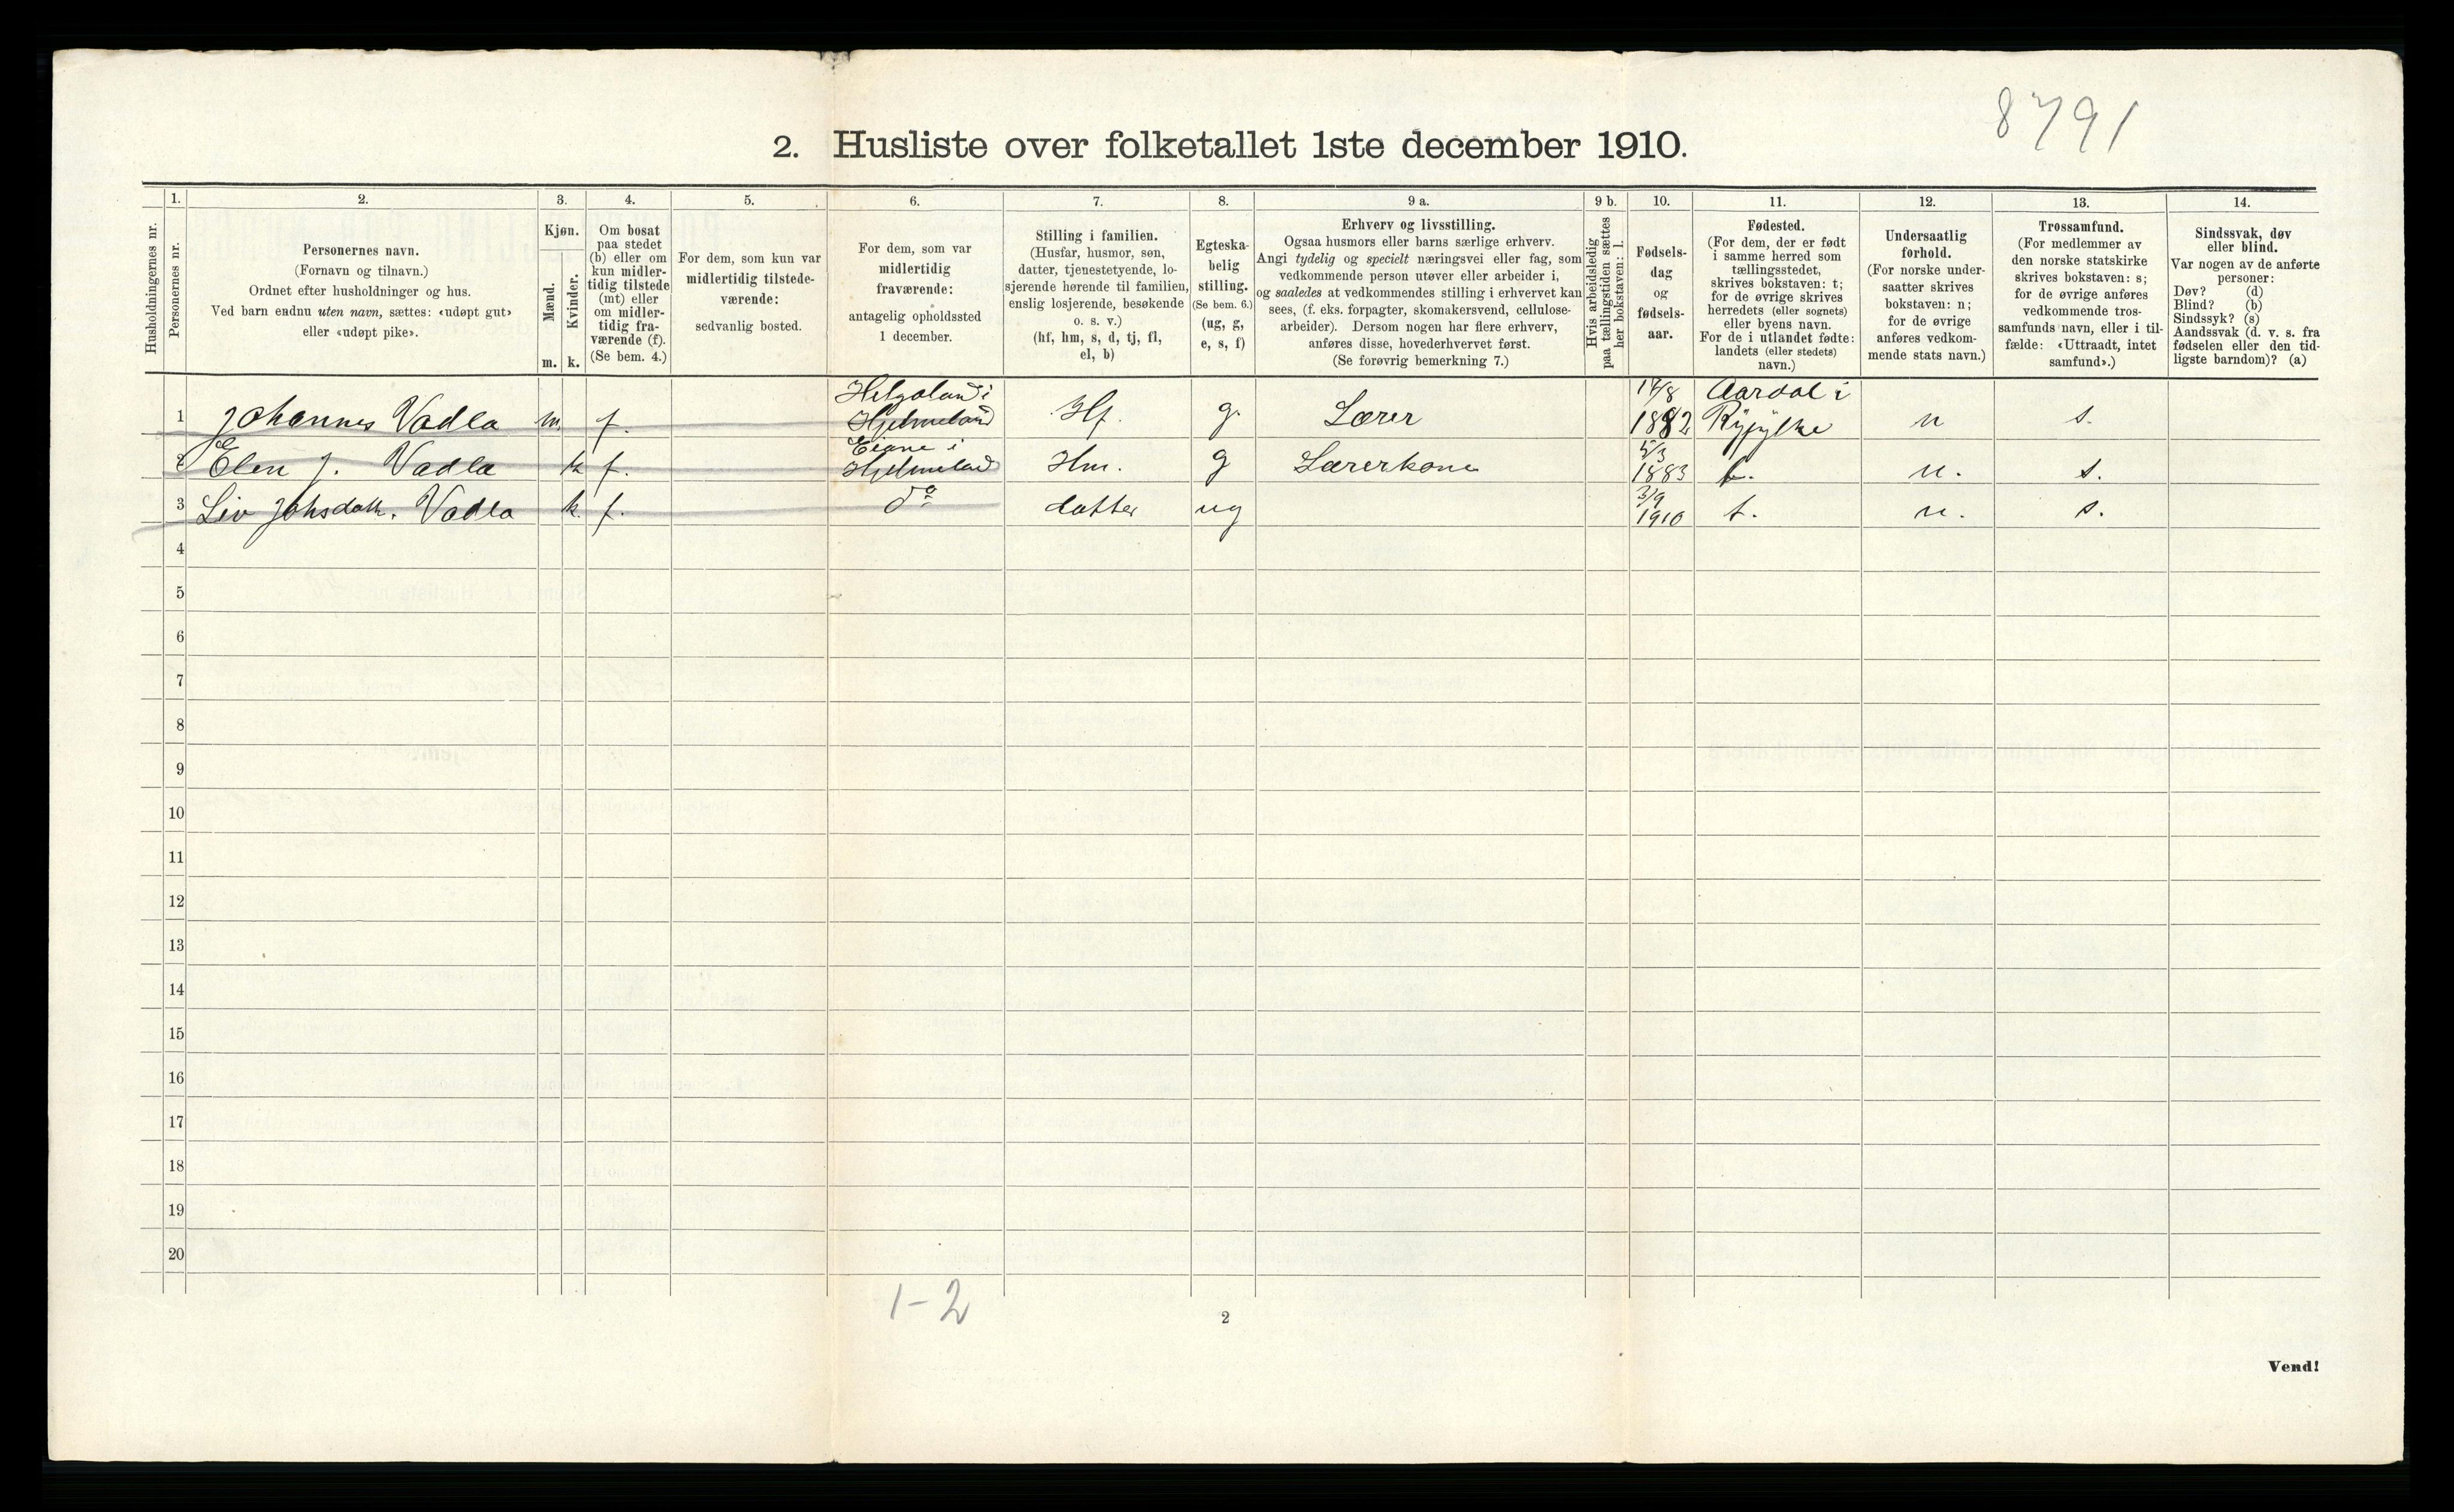 8791
2. Husliste over folketallet 1ste december 1910.
Husholdningernes nr.
1.
Personernes nr.
2.
Personernes navn.
(Fornavn og tilnavn.)
Ordnet efter husholdninger og hus.
Ved barn endnu uten navn, sættes: «udøpt gut»
eller «udøpt pike».
3.
Kjøn.
Mænd.
Kvinder.
m. k.
4.
Om bosat
paa stedet
(b) eller om
kun midler-
tidig tilstede
(mt) eller
om midler-
tidig fra-
værende (f).
(Se bem. 4.)
5.
For dem, som kun var
midlertidig tilstede-
værende:
sedvanlig bosted.
6.
For dem, som var
midlertidig
fraværende:
antagelig opholdssted
1 december.
7.
Stilling i familien.
(Husfar, husmor, søn,
datter, tjenestetyende, lo-
sjerende hørende til familien,
enslig losjerende, besøkende
o. s. v.)
(hf, hm, s, d, tj, fl,
el, b)
8.
Egteska-
belig
stilling.
(Se bem. 6.)
(ug, g,
e, s, f)
9 a.
Erhverv og livsstilling.
Ogsaa husmors eller barns særlige erhverv.
Angi tydelig og specielt næringsvei eller fag, som
vedkommende person utøver eller arbeider i,
og saaledes at vedkommendes stilling i erhvervet kan
sees, (f. eks. forpagter, skomakersvend, cellulose-
arbeider). Dersom nogen har flere erhverv,
anføres disse, hovederhvervet først.
(Se forøvrig bemerkning 7.)
9 b.
Hvis arbeidsledig
paa tællingstiden sættes
her bokstaven: l.
10.
Fødsels-
dag
og
fødsels-
aar.
11.
Fødested.
(For dem, der er født
i samme herred som
tællingsstedet,
skrives bokstaven: t;
for de øvrige skrives
herredets (eller sognets)
eller byens navn.
For de i utlandet fødte:
landets (eller stedets)
navn.)
12.
Undersaatlig
forhold.
(For norske under-
saatter skrives
bokstaven: n;
for de øvrige
anføres vedkom-
mende stats navn.)
13.
Trossamfund.
(For medlemmer av
den norske statskirke
skrives bokstaven: s;
for de øvrige anføres
vedkommende tros-
samfunds navn, eller i til-
fælde: «Uttraadt, intet
samfund».)
14.
Sindssvak, døv
eller blind.
Var nogen av de anførte
personer:
Døv? (d)
Blind? (b)
Sindssyk? (s)
Aandssvak (d. v. s. fra
fødselen eller den tid-
ligste barndom)? (a)
Helgaland i 14/8 Aardal i
1 Johannes Vadla m. f. Hjelmeland Hf. g. Lærer 1882 Ryfylke n s.
Eiane i 5/3
2 Elen J. Vadla k f. Hjelmeland Hm. g Lærerkone 1883 t. n. s.
3/9
3 Liv Johsdatt. Vadla k. f. do datter ug 1910 t. n. s.
4
5
6
7
8
9
10
11
12
13
14
15
16
17
18
19
20
1-2
2
Vend!